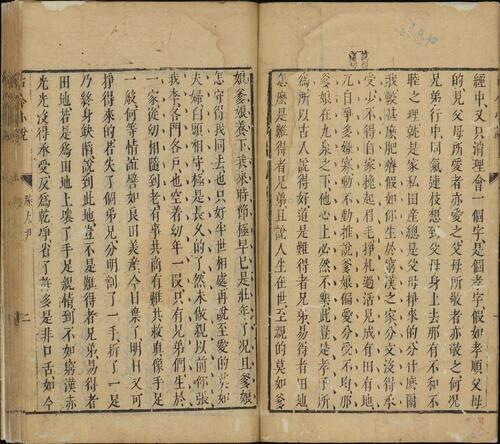 經中又只消理會一個字是個孝字假如孝順父母
的見父母所愛者亦愛之父母所敬者亦敬之何況
兄弟行中同氣連枝想到父母身上去那有不和不
睦之理就是家私田產總是父母掙來的分什麼爾
我較甚麼肥瘠假如你生於窮漢之家分文沒得承
受少不得自家挽起眉毛掙札過活見成有田有地
兀自爭多嫌寡動不動推說爹娘偏愛分受不均那
爹娘在九泉之下他心上必然不樂此豈是孝子所
為所以古人說得好道是難得者兄弟易得者田地
怎麼是難得者兄弟且說人生在世至親的莫如爹
娘爹娘養下我來時節極早已是壯年了況且爹娘
怎守得我同去也只好半世相處再說至愛的莫如
夫婦白頭相守極是長久的了然未做親以前你張
我李各門各戶也空着幼年一段只有兄弟們生於
一家從幼相隨到老有事共商有難共救真像手足
一般何等情誼譬如良田美產今日棄了明日又可
掙得來的若失了個弟兄分明割了一手折了一足
乃終身缺陷說到此地豈不是難得者兄弟易得者
田地若是為田地上壞了手足親情到不如窮漢赤
光光沒得承受反為乾淨省了許多是非口舌如今
古今小說 滕大尹 二